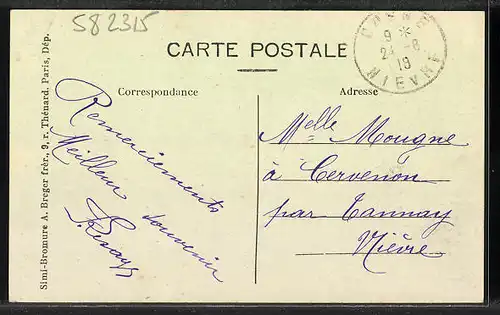 582315
CARTE POSTALE
9 *
24 -8
19
NIEVRE
Correspondance
Adresse
Remerciements
Meilleur souvenir
Melle Mougne
à Cervenon
par Tannay
Nièvre
Simi-Bromure A. Breger frèr., 9, r. Thénard, Paris, Dép.